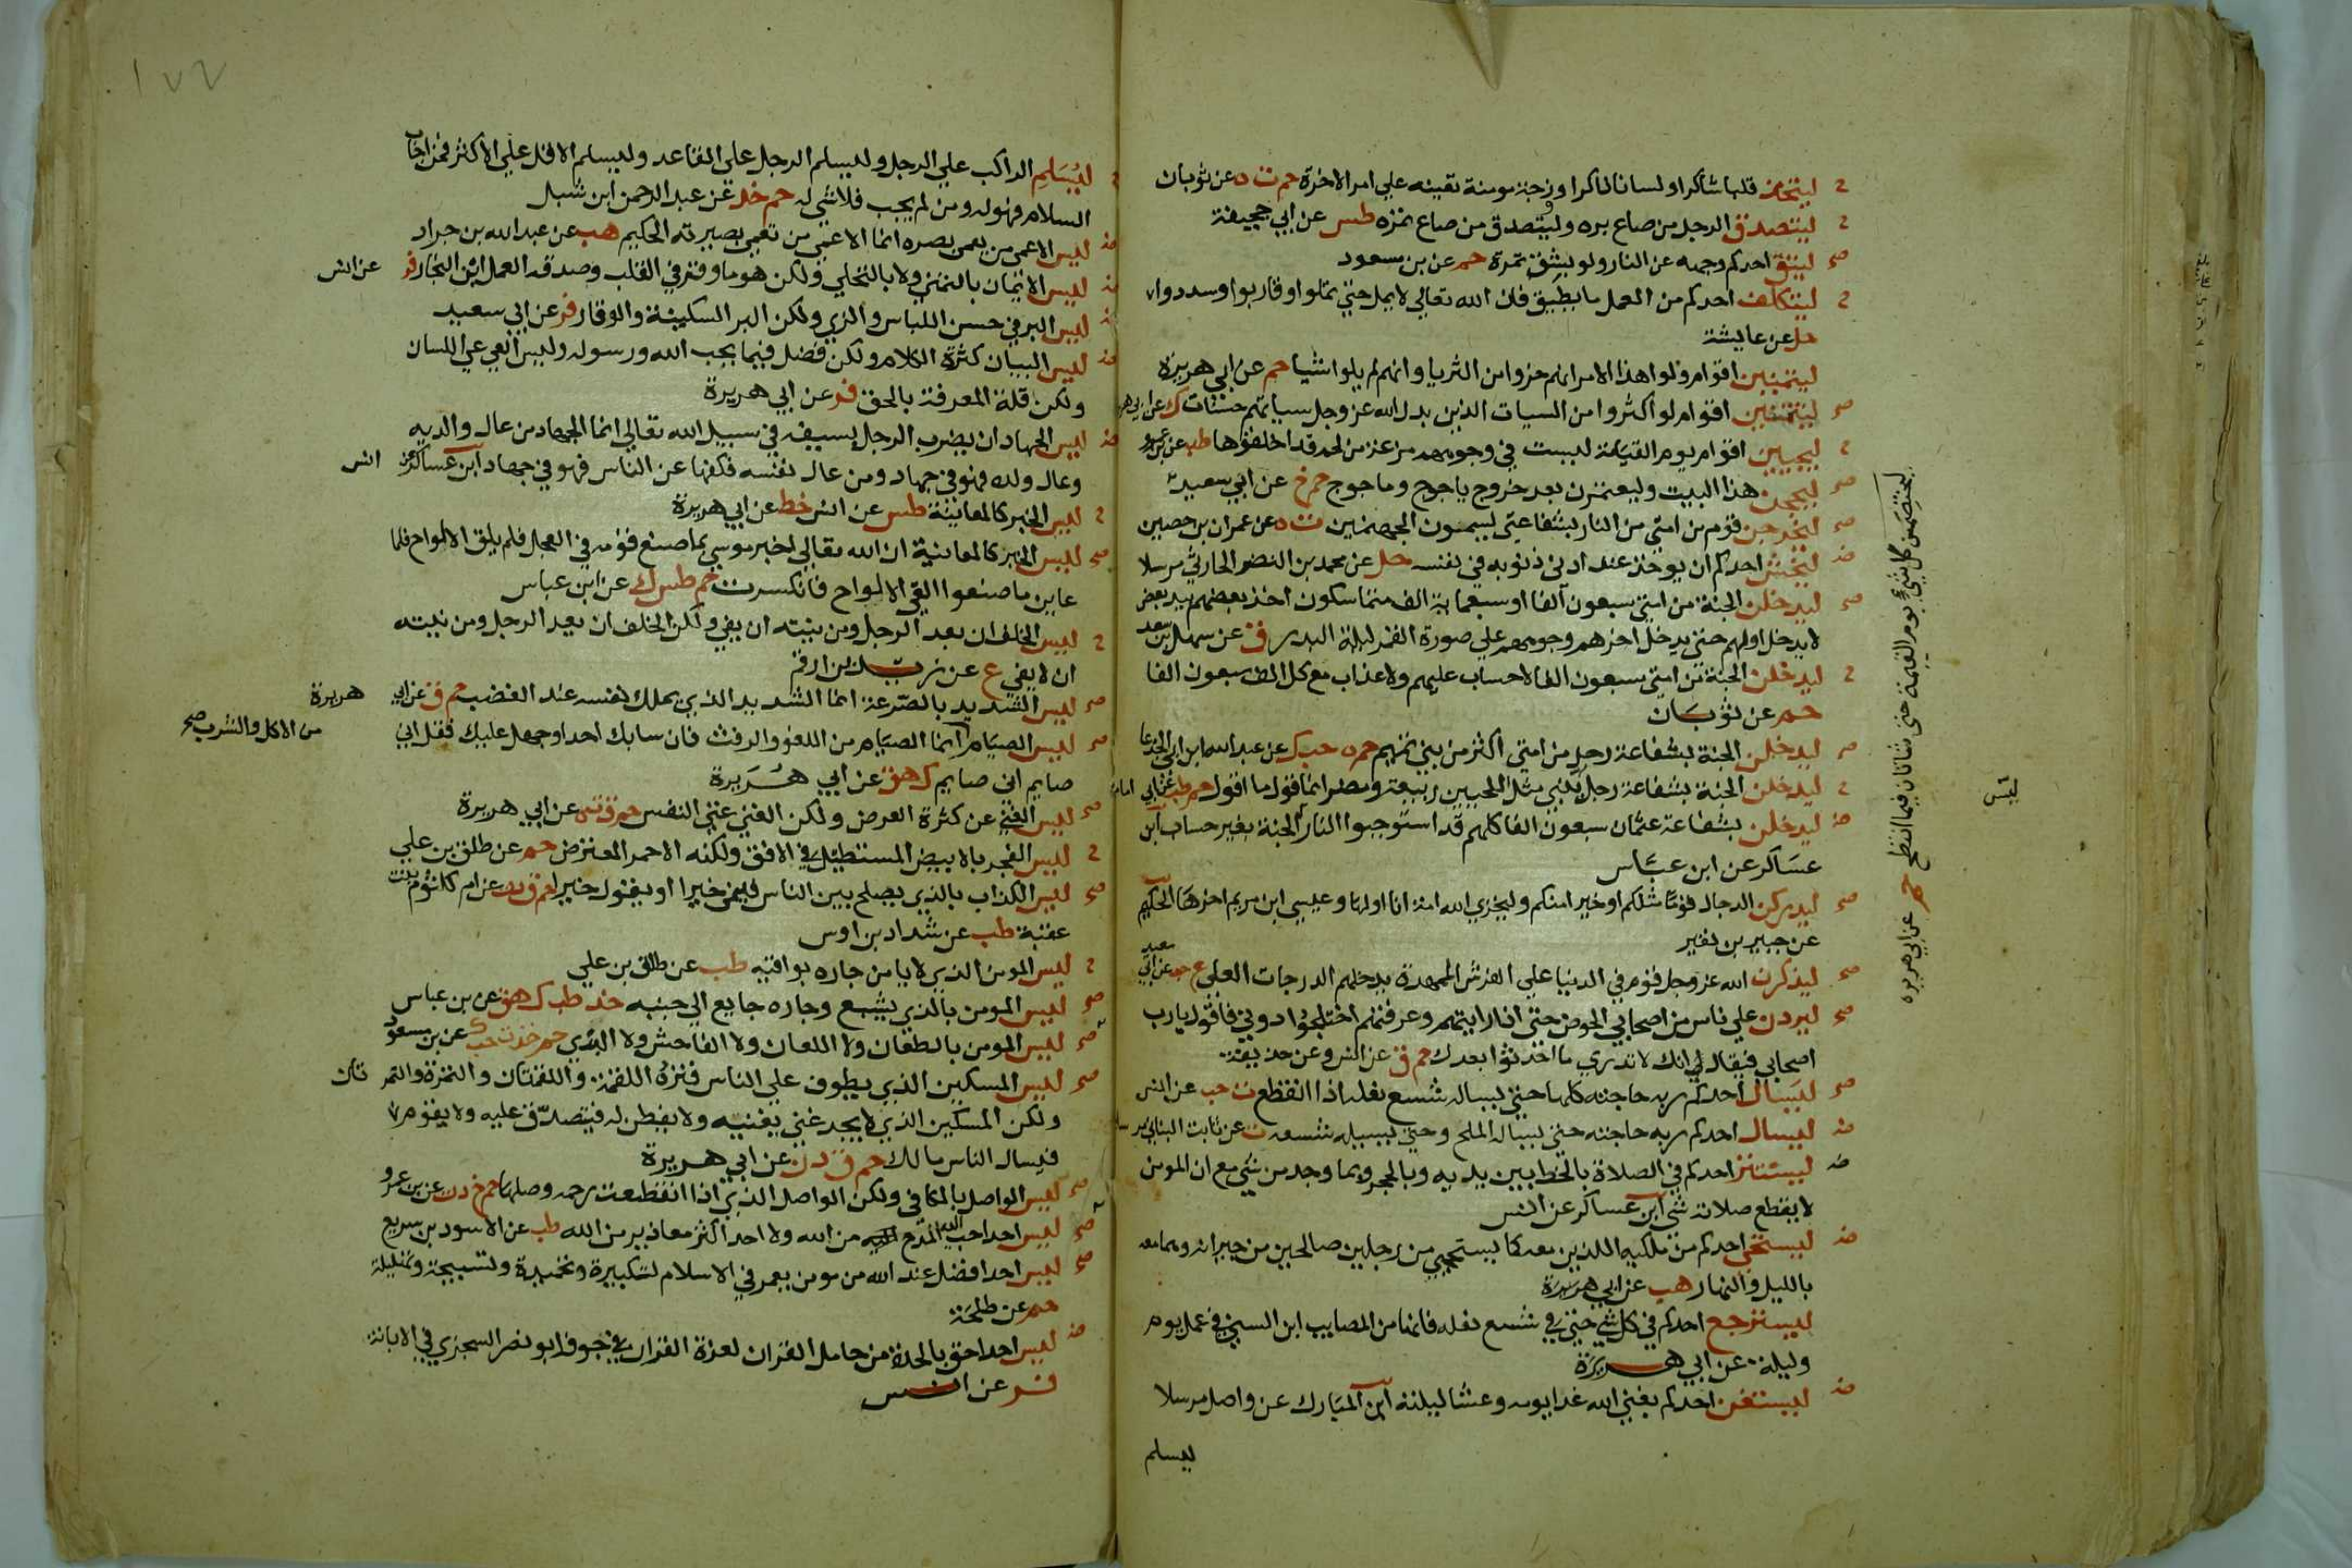 ليتخذ قلبا شاكرا ولسانا ذاكرا وزوجة مومنة تعينه علي امر الاخرة حم ت ه عن ثوبان
ليتصدق الرجل من صاع بره وليتصدق من صاع تمره طس عن ابي جحيفة
ليتق احدكم وجهه عن النار ولو بشق تمرة حم عن بن مسعود
ليتكلف احدكم من العمل ما يطيق فان الله تعالي لا يمل حتي تملوا وقاربوا وسددوا
حل عن عايشة
ليتمنين اقوام ولوا هذا الامر انهم خروا من الثريا وانهم لم يلوا شيا حم عن ابي هريرة
ليتمنين اقوام لو اكثروا من السيات الذين بدل الله عز وجل سياتهم حسنات ك عن ابي هريرة
ليجيين اقوام يوم القيامة ليست في وجوههم مزعة من لحم قد اخلقوها طب عن بن عمر
ليحجن هذا البيت وليعتمرن بعد خروج ياجوج وماجوج حم خ عن ابي سعيد
ليخرجن قوم من امتي من النار بشفاعتي يسمون الجهنميين ت ه عن عمران بن حصين
ليخش احدكم ان يوخذ عند ادني ذنوبه في نفسه حل عن محمد بن النضر الحارثي مرسلا
ليدخلن الجنة من امتي سبعون الفا او سبعماية الف متماسكون اخذ بعضهم بيد بعض
لا يدخل اولهم حتي يدخل اخرهم وجوههم علي صورة القمر ليلة البدر ق عن سهل بن سعد
ليدخلن الجنة من امتي سبعون الفا لا حساب عليهم ولا عذاب مع كل الف سبعون الفا
حم عن ثوبان
ليدخلن الجنة بشفاعة رجل من امتي اكثر من بني تميم حم ه حب ك عن عبد الله ابن ابي الجدعا
ليدخلن الجنة بشفاعة رجل ليس بنبي مثل الحيين ربيعة ومضر انما اقول ما اقول حم طب عن ابي امامة
ليدخلن بشفاعة عثمان سبعون الفا كلهم قد استوجبوا النار الجنة بغير حساب ابن
عساكر عن ابن عباس
ليدركن الدجال قوما مثلكم او خيرا منكم ولن يخزي الله امة انا اولها وعيسي ابن مريم اخرها الحكيم
عن جبير بن نفير
ليذكرن الله عز وجل قوم في الدنيا علي الفرش الممهدة يدخلهم الدرجات العلي ع حب عن ابي سعيد
ليردن علي ناس من اصحابي الحوض حتي اذا رايتهم وعرفتهم اختلجوا دوني فاقول يا رب
اصحابي فيقال لي انك لا تدري ما احدثوا بعدك حم ق عن انس وعن حذيفة
ليسال احدكم ربه حاجته كلها حتي يساله شسع نعله اذا انقطع ت حب عن انس
ليسال احدكم ربه حاجته حتي يساله الملح وحتي يساله شسعه ت عن ثابت البناني مرسلا
ليستتر احدكم في الصلاة بالخط بين يديه وبالحجر وبما وجد من شي مع ان المومن
لا يقطع صلاته شي ابن عساكر عن انس
ليستحي احدكم من ملكيه اللذين معه كما يستحيي من رجلين صالحين من جيرانه وهما معه
بالليل والنهار هب عن ابي هريرة
ليسترجع احدكم في كل شي حتي في شسع نعله فانها من المصايب ابن السني في عمل يوم
وليلة عن ابي هريرة
ليستغن احدكم بغني الله غدا يومه وعشا ليلته ابن المبارك عن واصل مرسلا
ليسلم
ليختصمن كل شي يوم القيمة حتي شاتان فيما انتطح حم عن ابي هريرة
ليس
١٧٦
ليسلم الراكب علي الرجل وليسلم الرجل علي القاعد وليسلم الاقل علي الاكثر فمن اجاب
السلام فهو له ومن لم يجب فلا شي له حم خد عن عبد الرحمن ابن شبل
ليس الاعمي من يعمي بصره انما الاعمي من تعمي بصيرته الحكيم هب عن عبد الله بن جراد
ليس الايمان بالتمني ولا بالتحلي ولكن هو ما وقر في القلب وصدقه العمل ابن النجار فر عن انس
ليس البر في حسن اللباس والزي ولكن البر السكينة والوقار فر عن ابي سعيد
ليس البيان كثرة الكلام ولكن فصل فيما يحب الله ورسوله وليس العي عي اللسان
ولكن قلة المعرفة بالحق فر عن ابي هريرة
ليس الجهاد ان يضرب الرجل بسيفه في سبيل الله تعالي انما الجهاد من عال والديه
وعال ولده فهو في جهاد ومن عال نفسه فكفها عن الناس فهو في جهاد ابن عساكر عن انس
ليس الخبر كالمعاينة طس عن انس خط عن ابي هريرة
ليس الخبر كالمعاينة ان الله تعالي اخبر موسي بما صنع قومه في العجل فلم يلق الالواح فلما
عاين ما صنعوا القي الالواح فانكسرت حم طس ك عن ابن عباس
ليس الخلف ان يعد الرجل ومن نيته ان يفي ولكن الخلف ان يعد الرجل ومن نيته
ان لا يفي ع عن زيد بن ارقم
ليس الشديد بالصرعة انما الشديد الذي يملك نفسه عند الغضب حم ق عن ابي هريرة
ليس الصيام من الاكل والشرب صح انما الصيام من اللغو والرفث فان سابك احد او جهل عليك فقل اني
صايم اني صايم ك هق عن ابي هريرة
ليس الغني عن كثرة العرض ولكن الغني غني النفس حم ق ت ه عن ابي هريرة
ليس الفجر بالابيض المستطيل في الافق ولكنه الاحمر المعترض حم عن طلق بن علي
ليس الكذاب بالذي يصلح بين الناس فينمي خيرا او يقول خيرا حم ق د ت عن ام كلثوم بنت
عقبة طب عن شداد بن اوس
ليس المومن الذي لا يامن جاره بوايقه طب عن طلق بن علي
ليس المومن بالذي يشبع وجاره جايع الي جنبه خد طب ك هق عن بن عباس
ليس المومن بالطعان ولا اللعان ولا الفاحش ولا البذي حم خد ت حب ك عن بن مسعود
ليس المسكين الذي يطوف علي الناس فترده اللقمة واللقمتان والتمرة والتمرتان
ولكن المسكين الذي لا يجد غني يغنيه ولا يفطن له فيتصدق عليه ولا يقوم
فيسال الناس مالك حم ق د ن عن ابي هريرة
ليس الواصل بالمكافي ولكن الواصل الذي اذا انقطعت رحمه وصلها حم خ د ت عن بن عمرو
ليس احد احب اليه المدح من الله ولا احد اكثر معاذير من الله طب عن الاسود بن سريع
ليس احد افضل عند الله من مومن يعمر في الاسلام لتكبيره وتحميده وتسبيحه وتهليله
حم عن طلحة
ليس احد احق بالحدة من حامل القران لعزة القران في جوفه ابو نصر السجزي في الابانة
فر عن انس